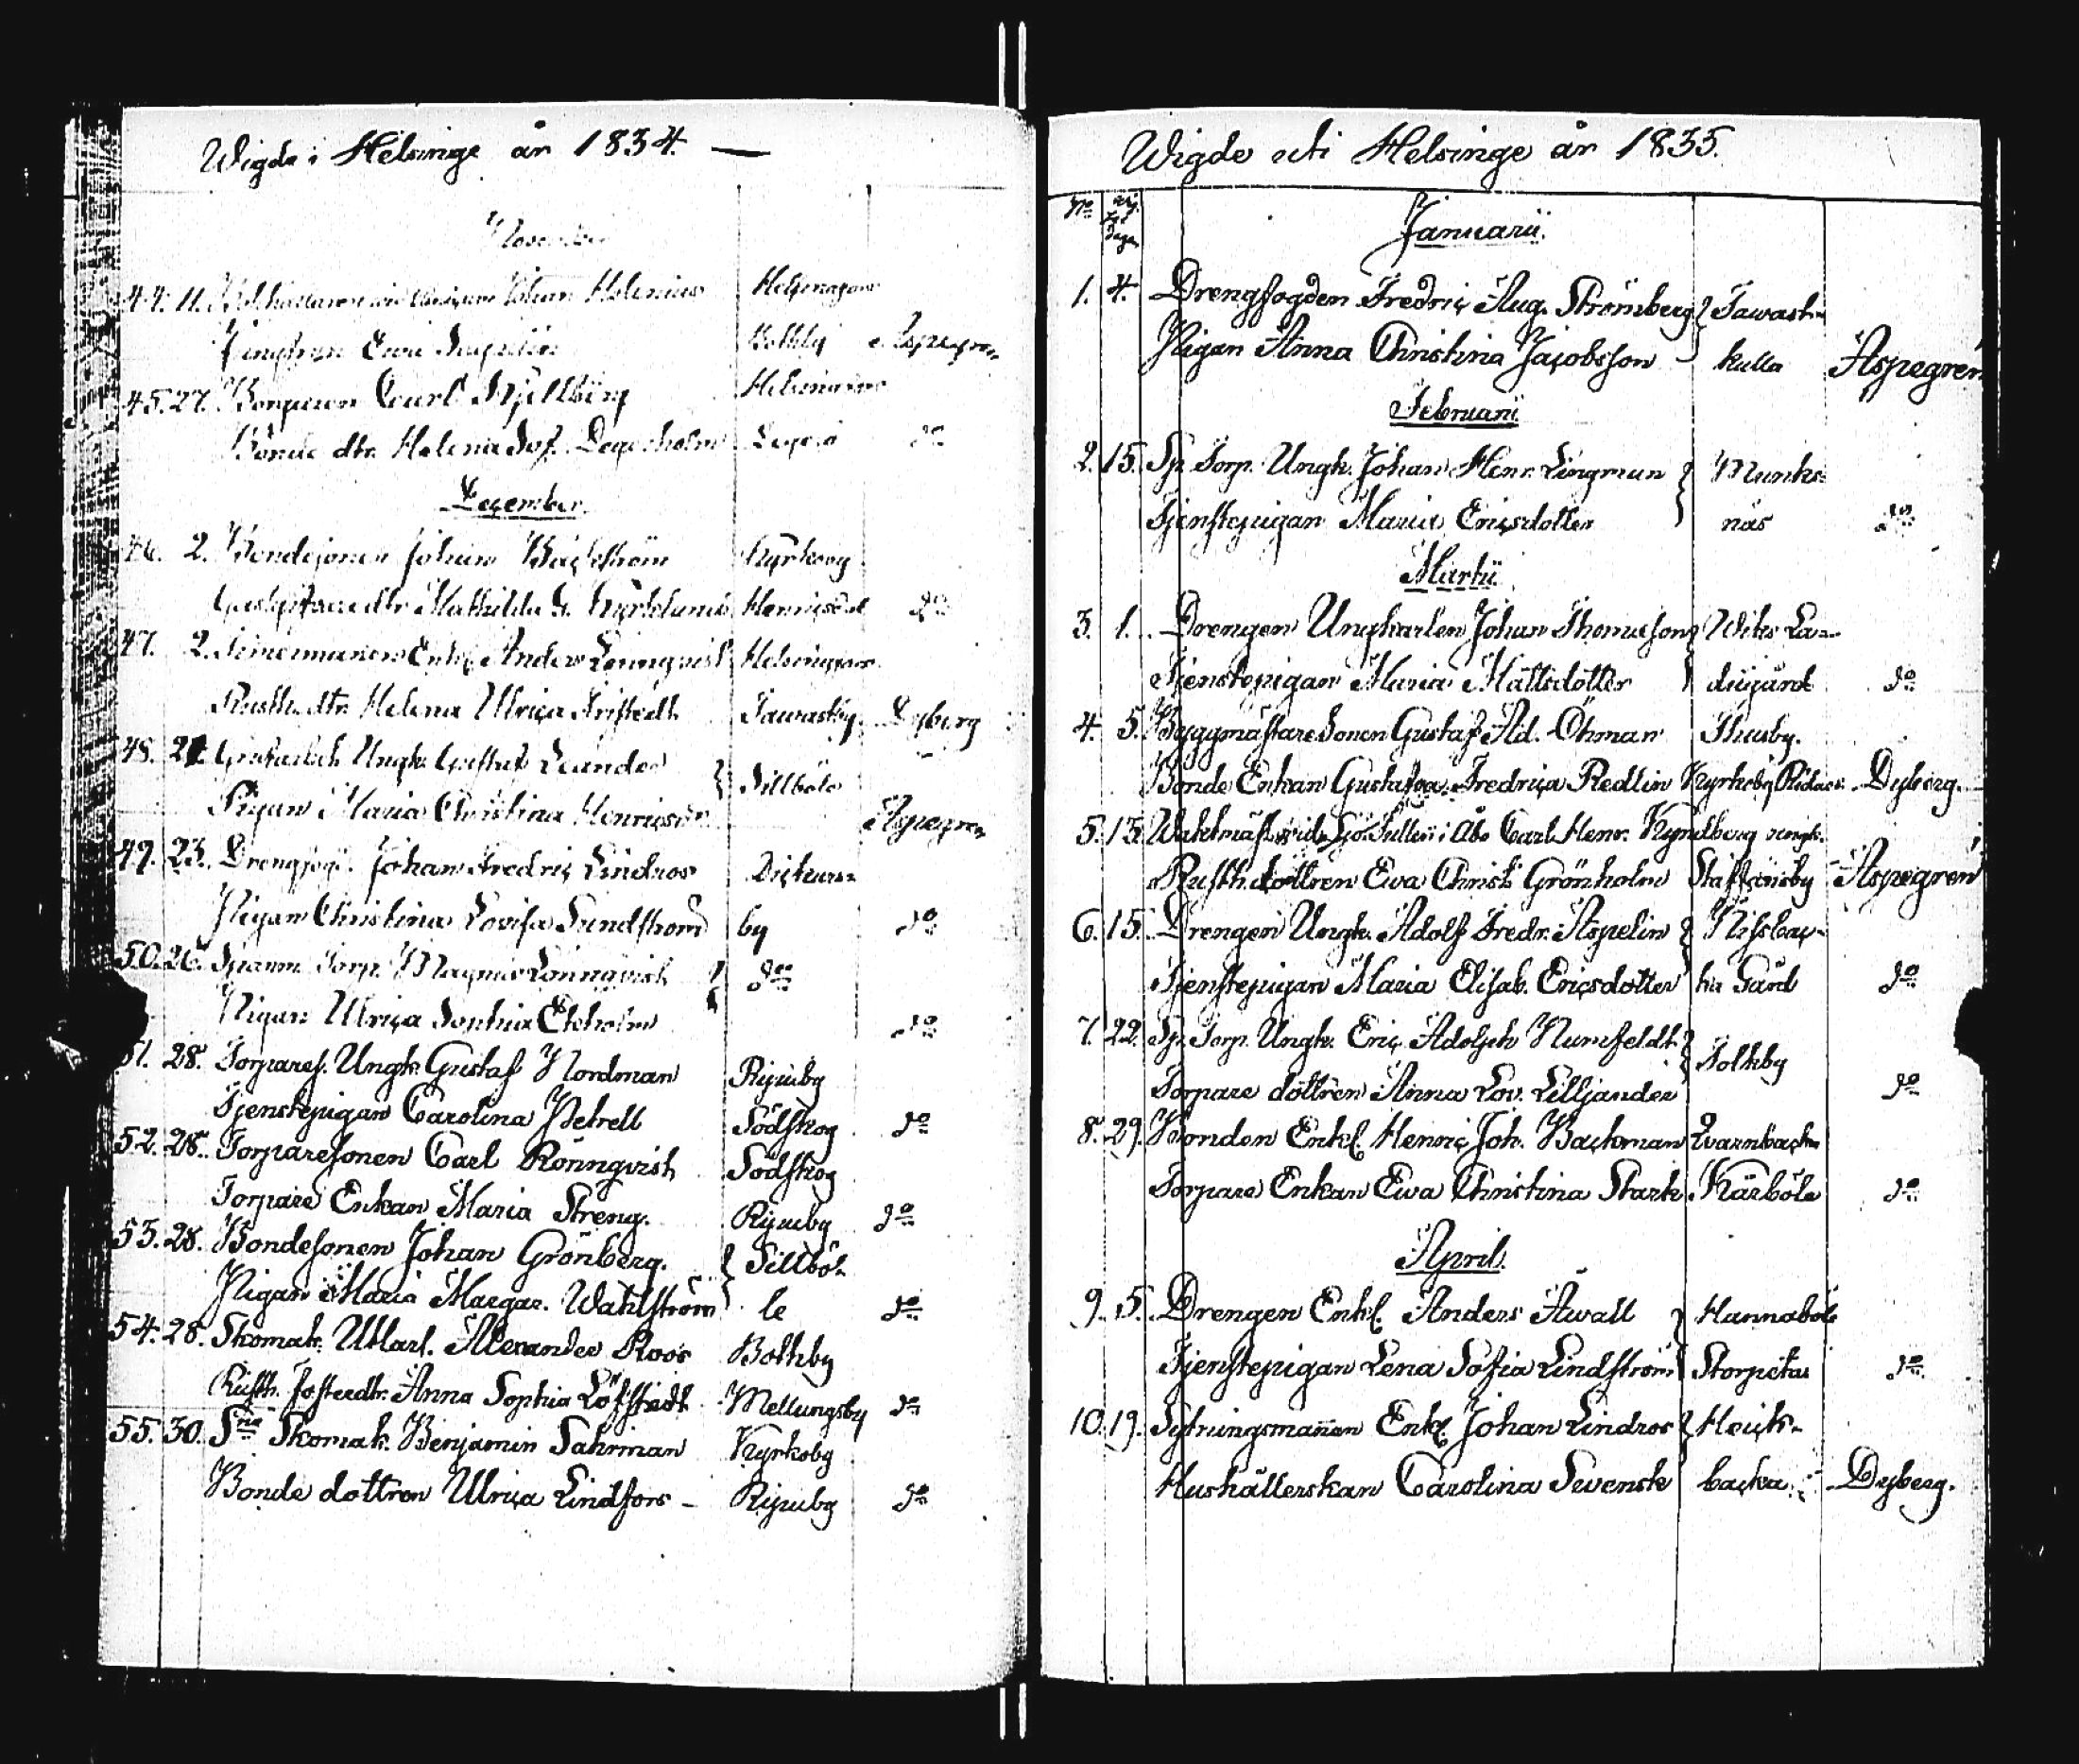 Wigde i Helsinge år 1834. —
November
44. 11. Johan Helenius Helsingfors
Ewa Aspegren
45. 27. Carl Helsingfors
Bonde dtr. Helena Sof. Degerholm Degerö do
December.
46. 2. Bondesonen Johan Bäckström Kyrkoby
Mathilda do
47. 2. Enkl. Anders Lönnqvist Helsingfors
Rusth. dtr. Helena Ulrica Fristedt Tawastby. Dyberg
48. 21. Ungk. Gustaf Leander } Sillböle
Pigan Maria Christina Henricsdr. Aspegren
49. 23. Drengen Johan Fredric Lindros Dickurs-
Pigan Christina Lovisa Sundström by do
50. 26. Spanm. Torp. Magnus Lönnqvist } do
Pigan Ulrica Sophia Ekholm do
51. 28. Torpares. Ungk. Gustaf Nordman Ripuby
Tjenstepigan Carolina Petrell Södskog do
52. 28. Torparesonen Carl Rönnqvist Södskog
Torpare Enkan Maria Streng. Ripuby do
53. 28. Bondesonen Johan Grönberg. } Sillbö-
Pigan Maria Margar. Wahlström le do
54. 28. Skomak. Utlärl. Alexander Roos Botby
Rusth. fosterdtr. Anna Sophia Löfstedt Mellungsby do
55. 30. Skomak. Benjamin Sahrman Kyrkoby
Bonde dottren Ulrica Lindfors — Ripuby do
Wigde uti Helsinge år 1835.
No dagen
Januarii.
1. 4. Drengfogden Fredric Aug. Strömberg } Tawast-
Pigan Anna Christina Jacobsson kulla Aspegren
Februarii
2. 15. Sp. Torp. Ungk. Johan Henr. Lingman } Munks-
Tjenstepigan Maria Ericsdotter näs do
Martii
3. 1. Drengen Ungkarlen Johan Thomasson } Wiks La-
Tjenstepigan Maria Mattsdotter dugård do
4. 5. Byggmästare Sonen Gustaf Ad. Öhman Thusby.
Bonde Enkan Gustafva Fredrica Redlin Kyrkoby Dyberg.
5. 13. Waktmäst. vid Sjö Tullen i Åbo Carl Henr. Kyndberg ungk.
Rusth. dottren Ewa Christ. Grönholm Staffansby Aspegren
6. 15. Drengen Ungk. Adolf Fredr. Aspelin } Nissbac-
Tjenstepigan Maria Elisab. Ericsdotter ka Gård do
7. 22. Sp. Torp. Ungk. Eric Adolph Numfeldt } Tolkby
Torpare dottren Anna Lov. Lilljander do
8. 29. Bonden Enkl. Henric Joh. Backman Qvarnbacka
Torpare Enkan Ewa Christina Stark Kårböle do
April.
9. 5. Drengen Enkl. Anders Awall } Hannaböle
Tjenstepigan Lena Sofia Lindström Storpetas do
10. 19. Sytningsmannen Enkl. Johan Lindros } Heick-
Hushållerskan Carolina Svensk backa Dyberg.